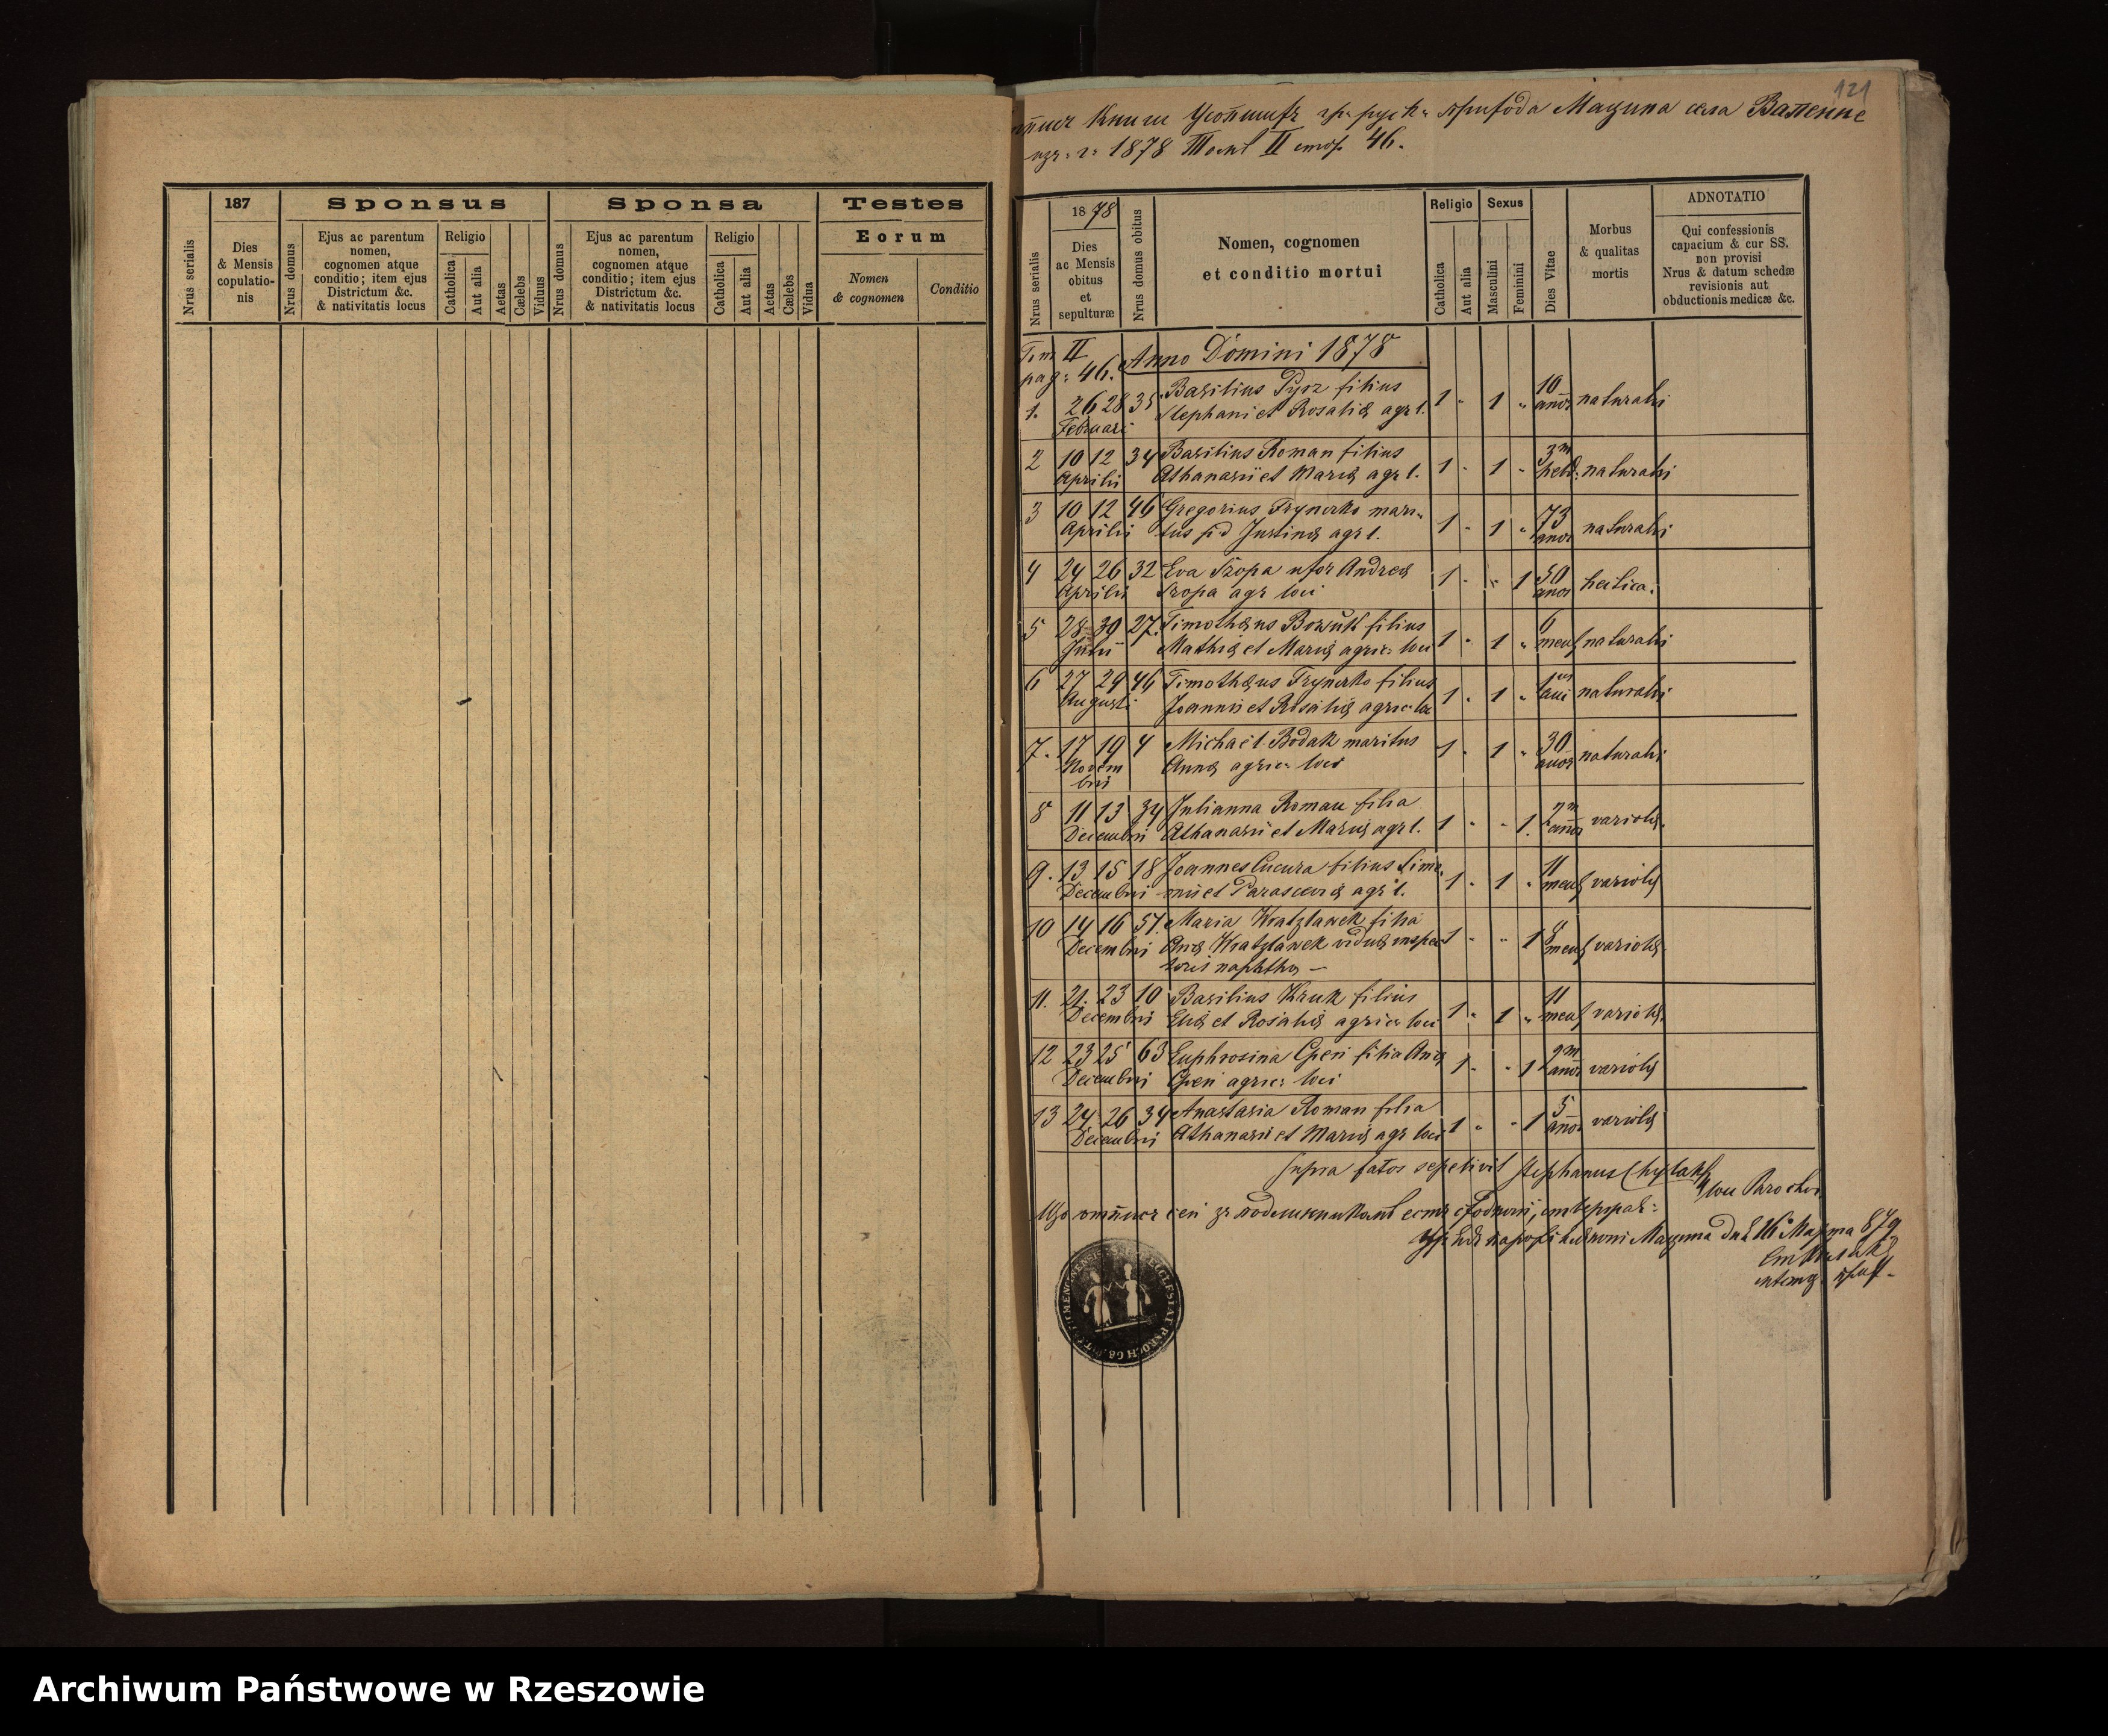 121
Книги гр. руск. Мацина села Вапенне
1878 Томъ II стор. 46.
187
Sponsus
Sponsa
Testes
Eorum
Nrus serialis
Dies
& Mensis
copulatio-
nis
Nrus domus
Ejus ac parentum
nomen,
cognomen atque
conditio; item ejus
Districtum &c.
& nativitatis locus
Religio
Catholica
Aut alia
Aetas
Cælebs
Viduus
Nrus domus
Ejus ac parentum
nomen,
cognomen atque
conditio; item ejus
Districtum &c.
& nativitatis locus
Religio
Catholica
Aut alia
Aetas
Cælebs
Vidua
Nomen
& cognomen
Conditio
Nrus serialis
1878
Dies
ac Mensis
obitus
et
sepulturæ
Nrus domus obitus
Nomen, cognomen
et conditio mortui
Religio
Catholica
Aut alia
Sexus
Masculini
Feminini
Dies Vitae
Morbus
& qualitas
mortis
ADNOTATIO
Qui confessionis
capacium & cur SS.
non provisi
Nrus & datum schedæ
revisionis aut
obductionis medicæ &c.
Tom II
pag: 46. Anno Domini 1878
1. 26 28 35 Basilius Pyrz filius 1 " 1 " 10 naturalis
Februari Stephani et Rosaliæ agr l. anor
2 10 12 34 Basilius Roman filius 1 " 1 " 3m naturalis
Aprilis Athanasii et Mariæ agr l. hebd:
3 10 12 46 Gregorius Trynczko mari- 1 " 1 " 73 naturalis
Aprilis tus Justinæ agr l. anor
4 24 26 32 Eva Szopa uxor Andreæ 1 " " 1 50 hectica.
Aprilis Szopa agr loci anor
5 28 30 27. Timothæus Borsuk filius 1 " 1 " 6 naturalis
Mathiæ et Mariæ agric: loci mens
6 27 29 46 Timothæus Trynczko filius 1 " 1 " naturalis
Augusti Joannis et Rosaliæ agric: loc ani
7. 17 19 4 Michaël Bodak maritus 1 " 1 " 30 naturalis
Novem Annæ agric: loci anor
bris
8 11 13 34 Julianna Roman filia 1 " " 1. 2 variolæ.
Decembris Athanasii et Mariæ agr l. anor
9. 13 15 18 Joannes Cucura filius Sime- 1 " 1 " 11 variolæ
Decembris onis et Parasceviæ agr l. mens
10 14 16 57. Maria Wratzlawek filia 1 " " 1 8 variolæ.
Decembris Anæ Wratzlawek viduæ inspec mens
toris naphthæ —
11. 21. 23 10 Basilius Kruk filius 1 " 1 " 11 variolæ.
Decembris Eliæ et Rosaliæ agric: loci mens
12 23 25 63 Euphrosina filia Anæ 1 " " 1 2 variolæ
Decembris agric: loci anor
13 24 26 34 Anastasia Roman filia 1 " " 1 5 variolæ
Decembris Athanasii et Mariæ agr loci anor
Supra fatos sepelivit Stephanus Chylak
loci Parochus
Що естъ сходный,
Мацина дня 16 Марта 879
Archiwum Państwowe w Rzeszowie